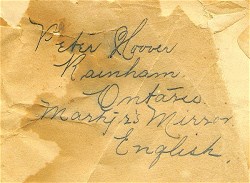 Peter Hoover
Rainham.
Ontario.
Martyr's Mirror
English.